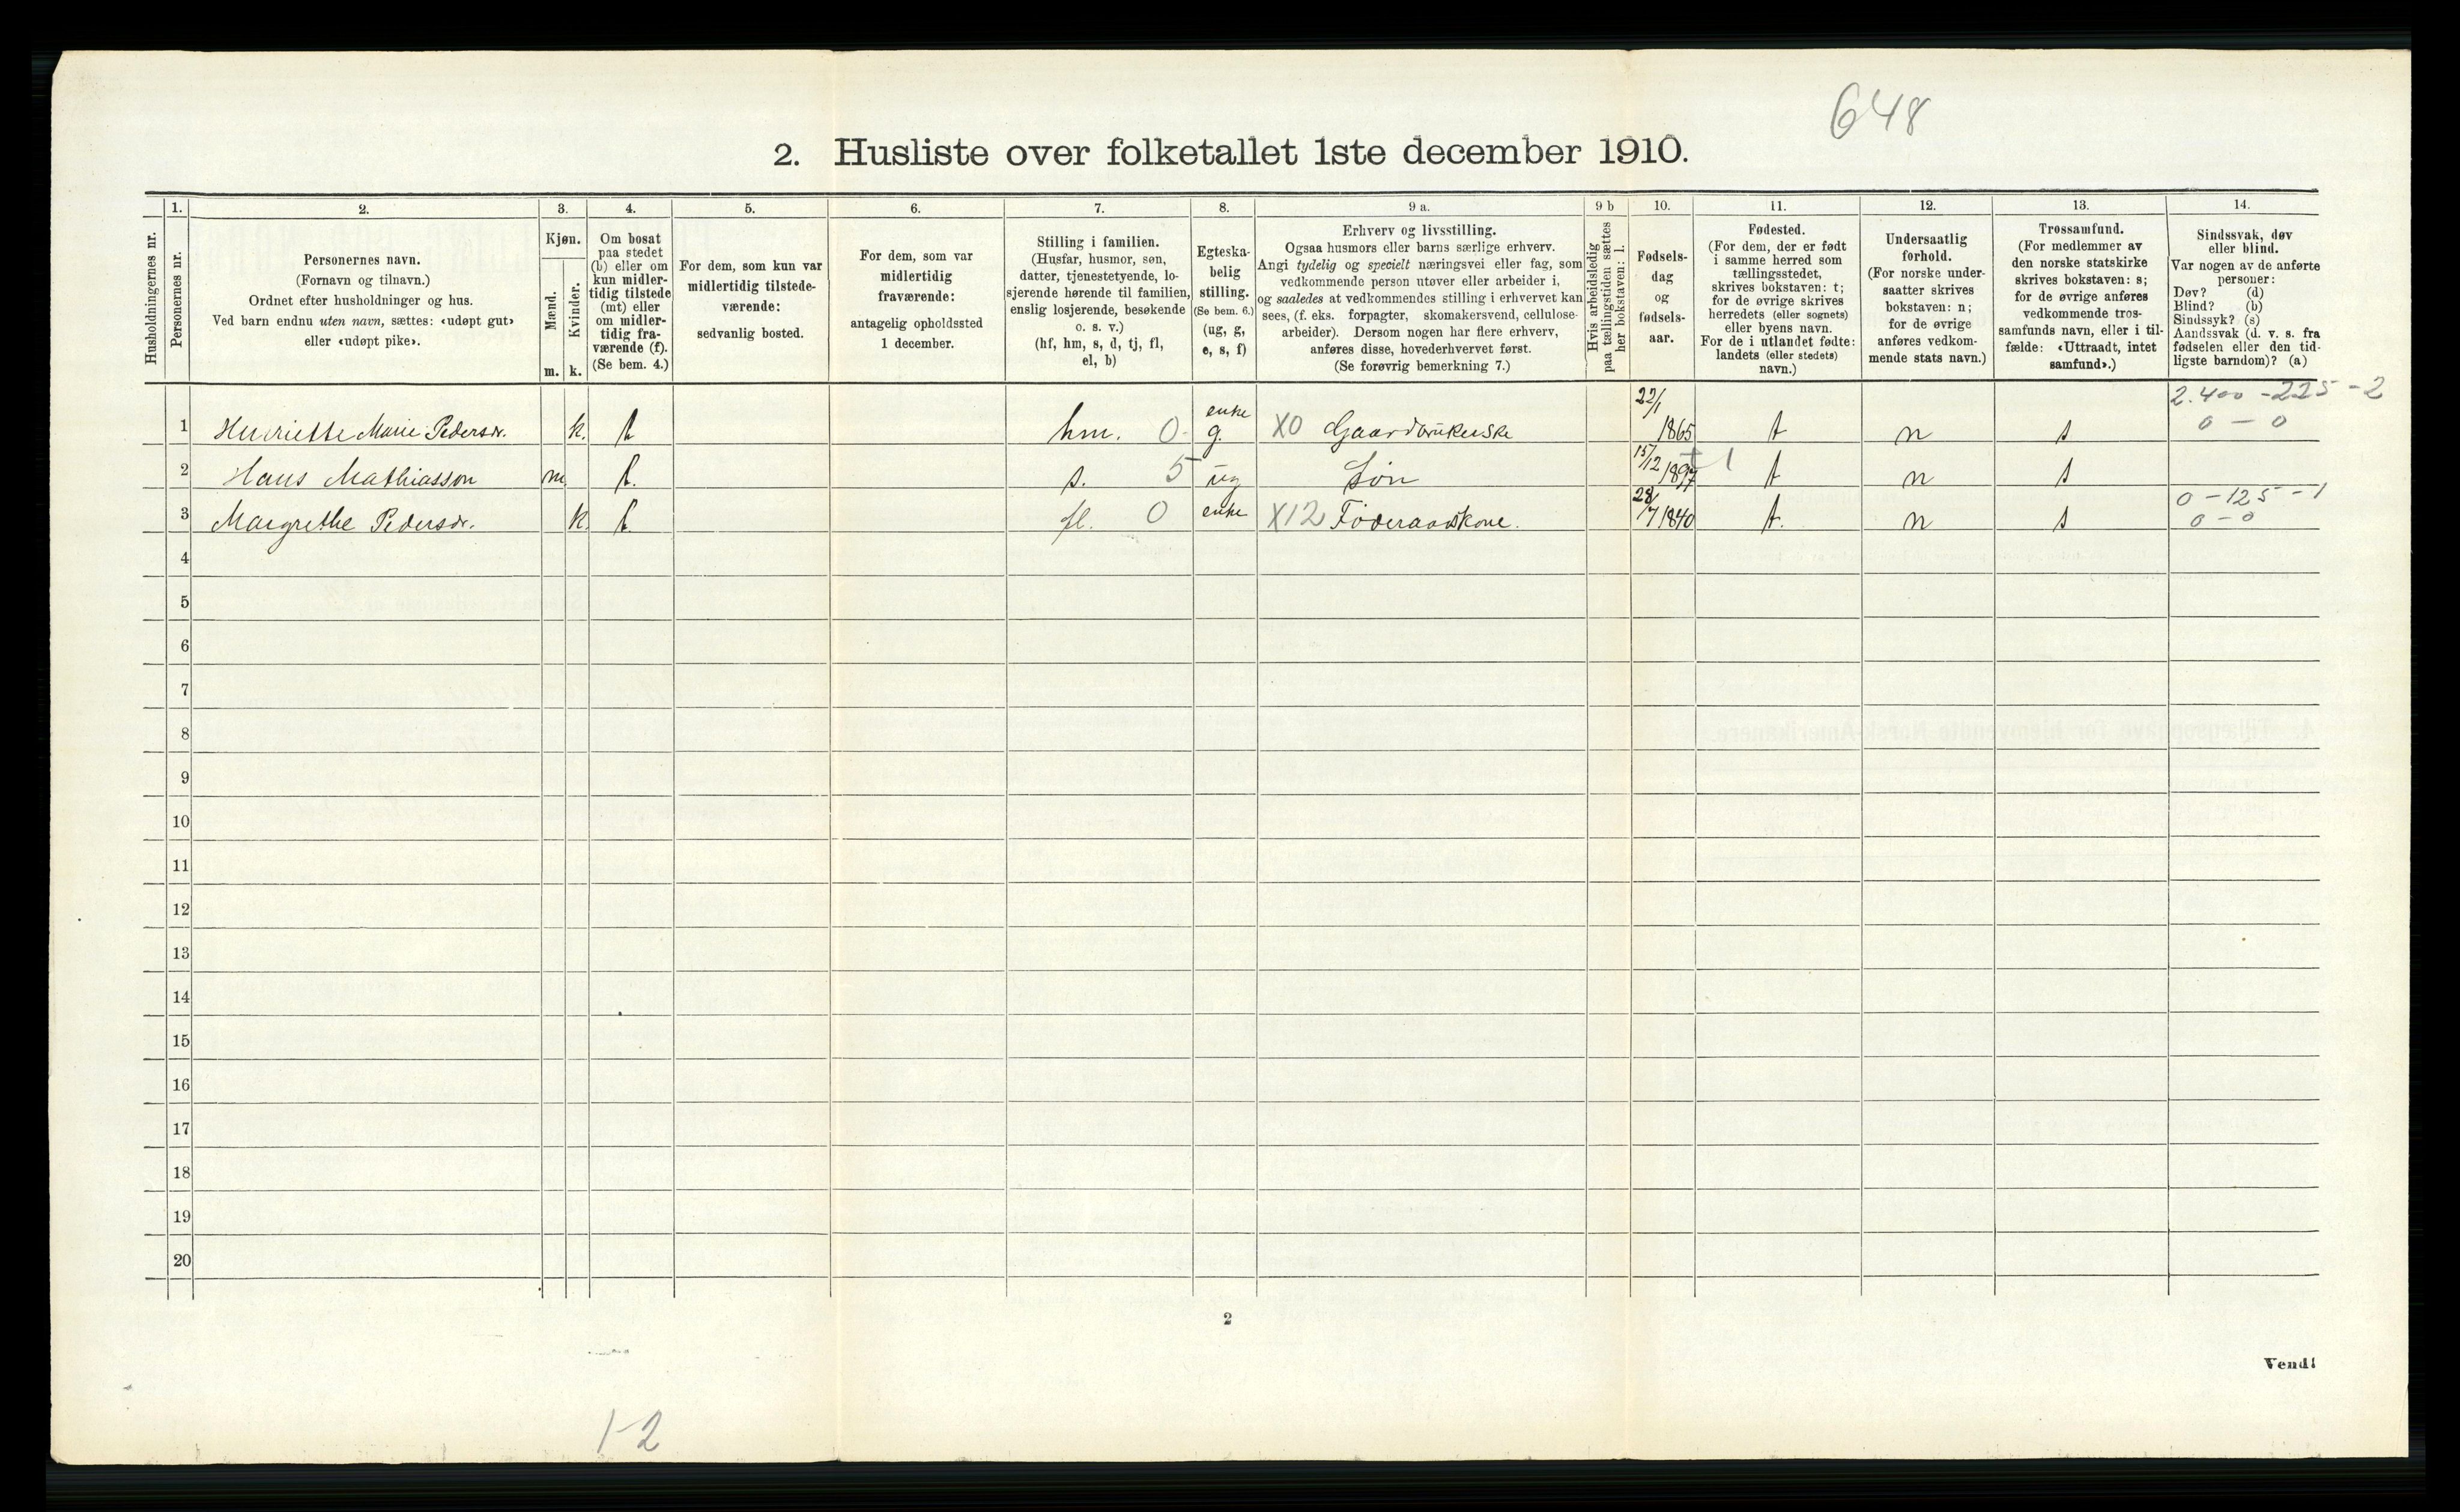 648
2. Husliste over folketallet 1ste december 1910.
Husholdningernes nr.
1.
Personernes nr.
2.
Personernes navn.
(Fornavn og tilnavn.)
Ordnet efter husholdninger og hus.
Ved barn endnu uten navn, sættes: «udøpt gut»
eller «udøpt pike».
3.
Kjøn.
Mænd.
Kvinder.
m. k.
4.
Om bosat
paa stedet
(b) eller om
kun midler-
tidig tilstede
(mt) eller
om midler-
tidig fra-
værende (f).
(Se bem. 4.)
5.
For dem, som kun var
midlertidig tilstede-
værende:
sedvanlig bosted.
6.
For dem, som var
midlertidig
fraværende:
antagelig opholdssted
1 december.
7.
Stilling i familien.
(Husfar, husmor, søn,
datter, tjenestetyende, lo-
sjerende hørende til familien,
enslig losjerende, besøkende
o. s. v.)
(hf, hm, s, d, tj, fl,
el, b)
8.
Egteska-
belig
stilling.
(Se bem. 6.)
(ug, g,
e, s, f)
9 a.
Erhverv og livsstilling.
Ogsaa husmors eller barns særlige erhverv.
Angi tydelig og specielt næringsvei eller fag, som
vedkommende person utøver eller arbeider i,
og saaledes at vedkommendes stilling i erhvervet kan
sees, (f. eks. forpagter, skomakersvend, cellulose-
arbeider). Dersom nogen har flere erhverv,
anføres disse, hovederhvervet først.
(Se forøvrig bemerkning 7.)
9 b
Hvis arbeidsledig
paa tællingstiden sættes
her bokstaven: l.
10.
Fødsels-
dag
og
fødsels-
aar.
11.
Fødested.
(For dem, der er født
i samme herred som
tællingsstedet,
skrives bokstaven: t;
for de øvrige skrives
herredets (eller sognets)
eller byens navn.
For de i utlandet fødte:
landets (eller stedets)
navn.)
12.
Undersaatlig
forhold.
(For norske under-
saatter skrives
bokstaven: n;
for de øvrige
anføres vedkom-
mende stats navn.)
13.
Trossamfund.
(For medlemmer av
den norske statskirke
skrives bokstaven: s;
for de øvrige anføres
vedkommende tros-
samfunds navn, eller i til-
fælde: «Uttraadt, intet
samfund».)
14.
Sindssvak, døv
eller blind.
Var nogen av de anførte
personer:
Døv? (d)
Blind? (b)
Sindssyk? (s)
Aandssvak (d. v. s. fra
fødselen eller den tid-
ligste barndom)? (a)
2.400 - 225 - 2
0 - 0
1 Henriette Marie Pedersdr. k. hm. 0 enke g. X0 Gaardbrukerske 22/1 1865 t n s
2 Hans Mathiasson m s. 5 ug Søn 15/12 1897 t n s
0 - 125 - 1
0 - 0
3 Margrethe Pedersdr. k. fl. 0 enke X12 Föderaadskone. 28/7 1840 t. n s
4
5
6
7
8
9
10
11
12
13
14
15
16
17
18
19
20
2
Vend!
1-2